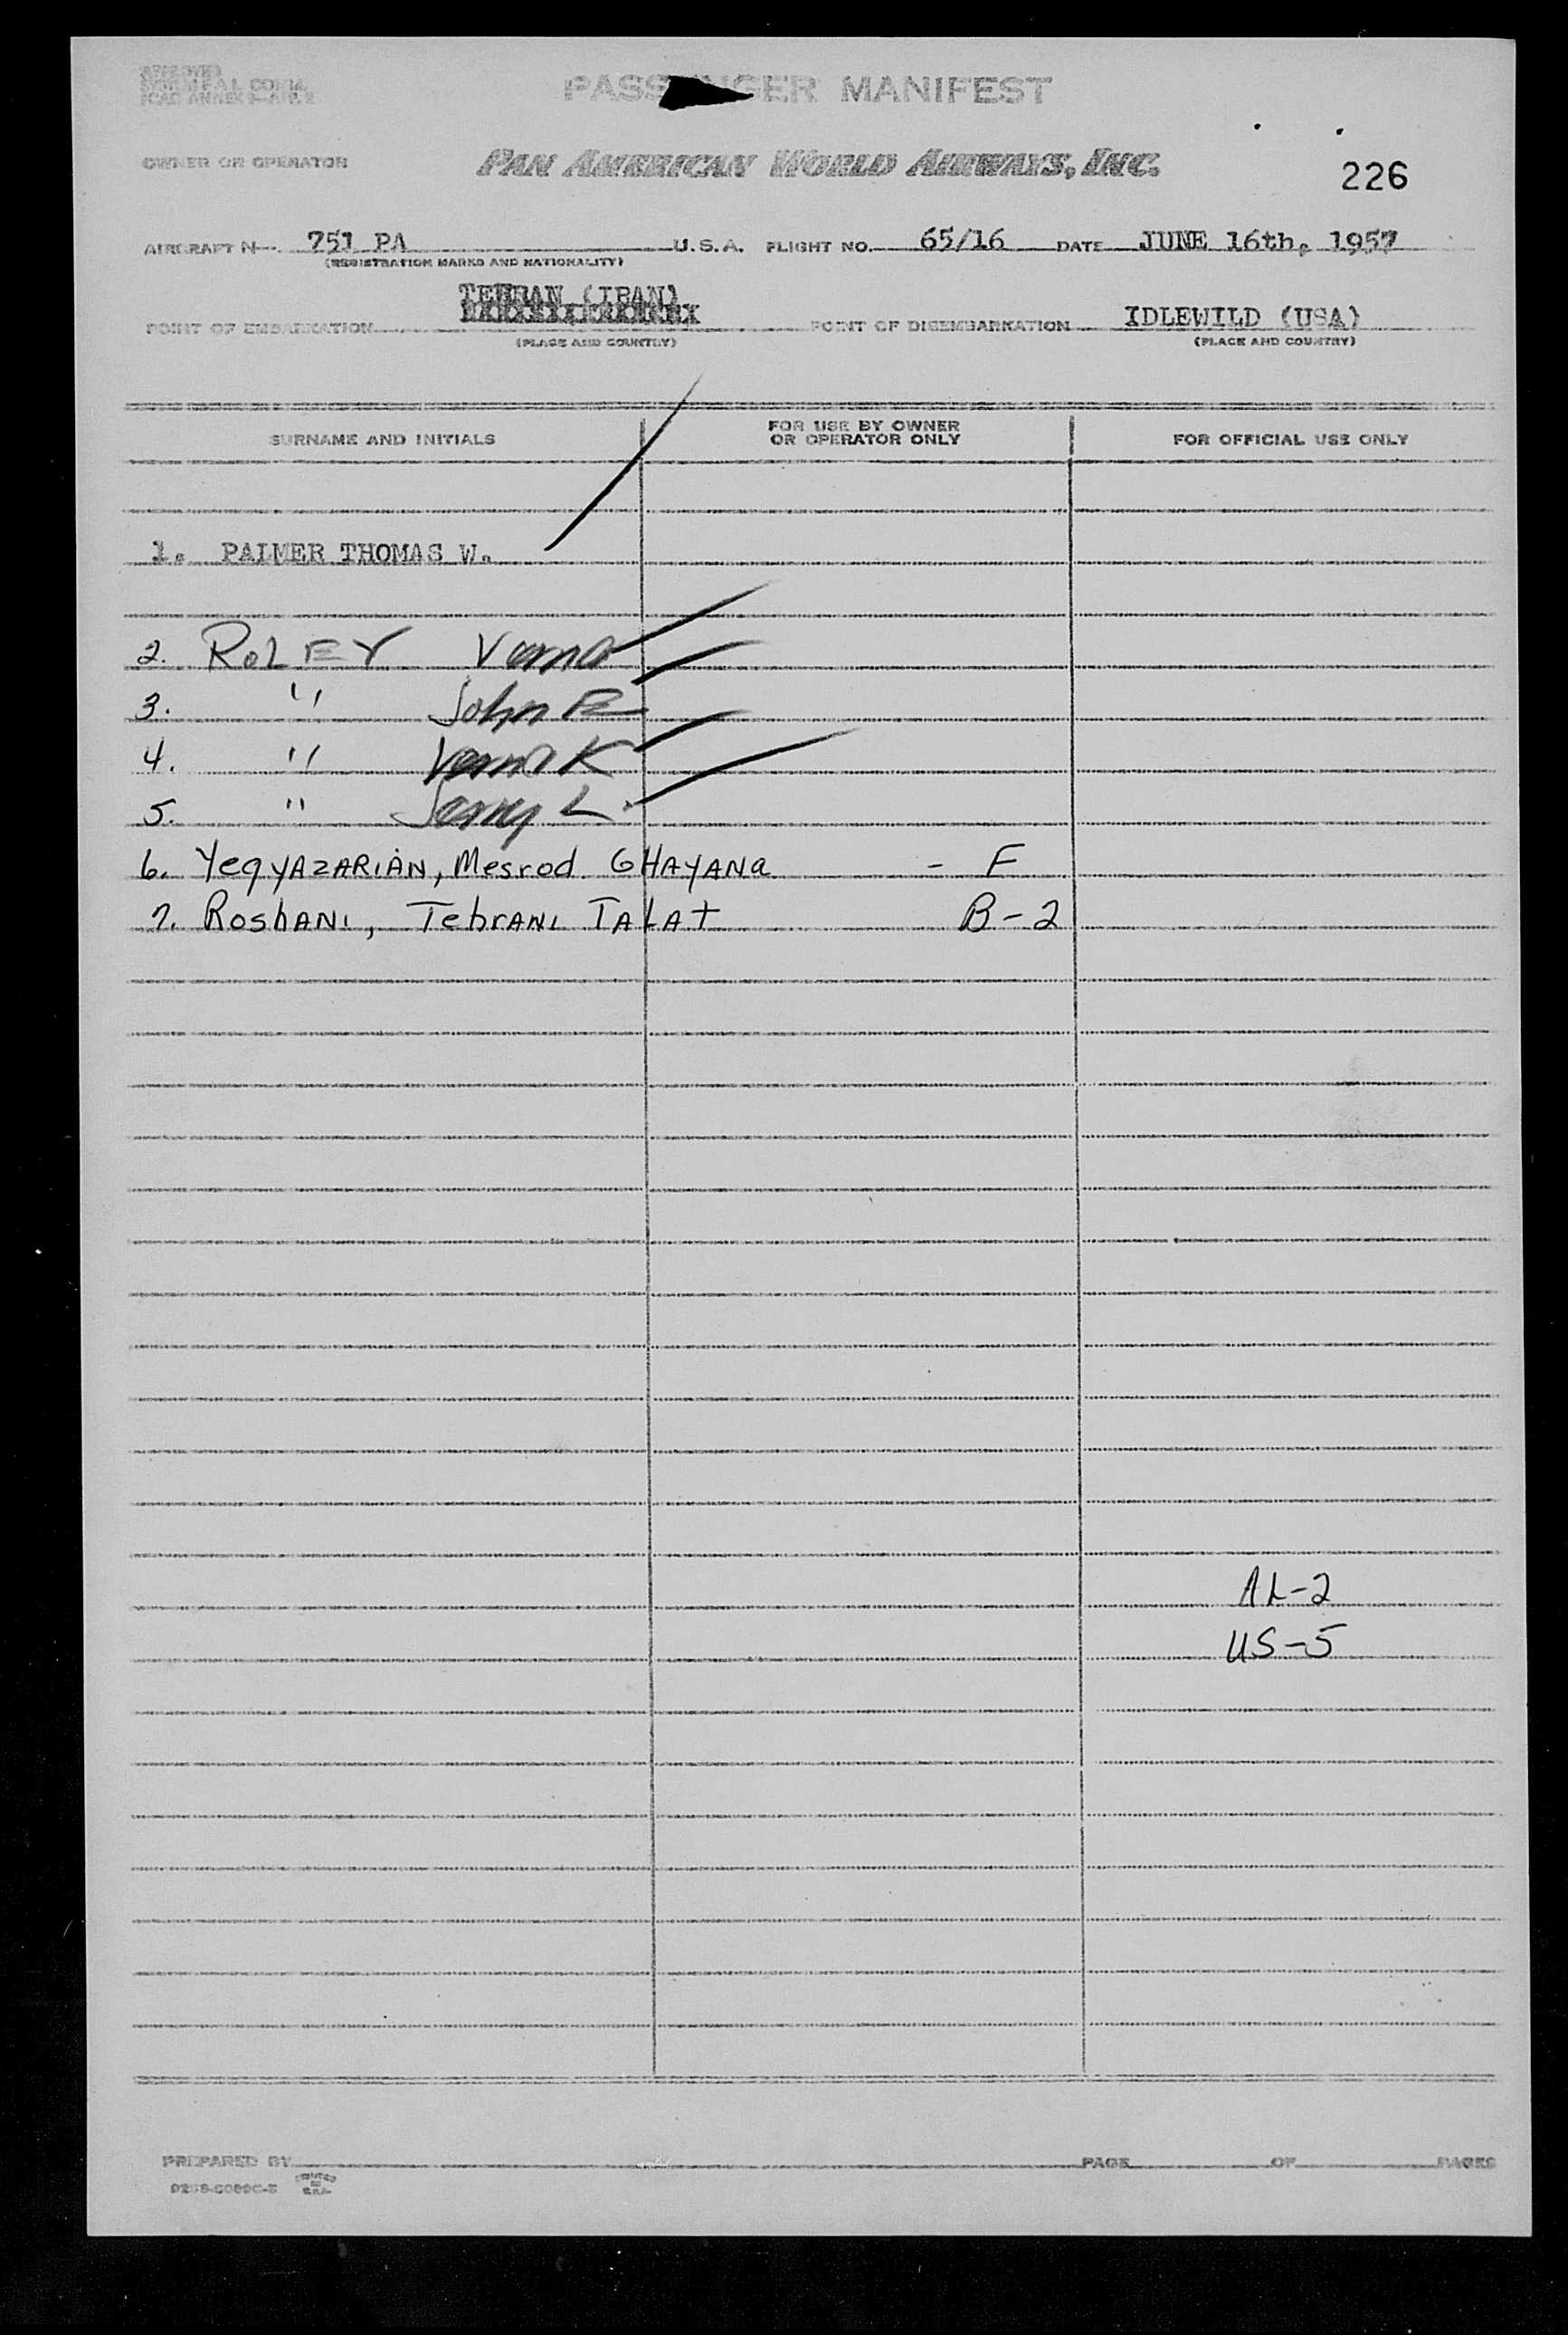 APPROVED
PASSENGER MANIFEST
OWNER OR OPERATOR PAN AMERICAN WORLD AIRWAYS, INC. 226
AIRCRAFT N 751 PA U.S.A. FLIGHT NO. 65/16 DATE JUNE 16th, 1957
(REGISTRATION MARKS AND NATIONALITY)
TEHRAN (IRAN)
POINT OF EMBARKATION POINT OF DISEMBARKATION IDLEWILD (USA)
(PLACE AND COUNTRY) (PLACE AND COUNTRY)
SURNAME AND INITIALS FOR USE BY OWNER OR OPERATOR ONLY FOR OFFICIAL USE ONLY
1. PALMER THOMAS W.
2. ROLEY Verna
3. " John
4. " Verna K
5. " Jerry L.
6. YeqyAZARIAN, Mesrod GHAYANa - F
7. RoshANI, TehrANI TALAT B-2
AL-2
US-5
PREPARED BY PAGE OF PAGES